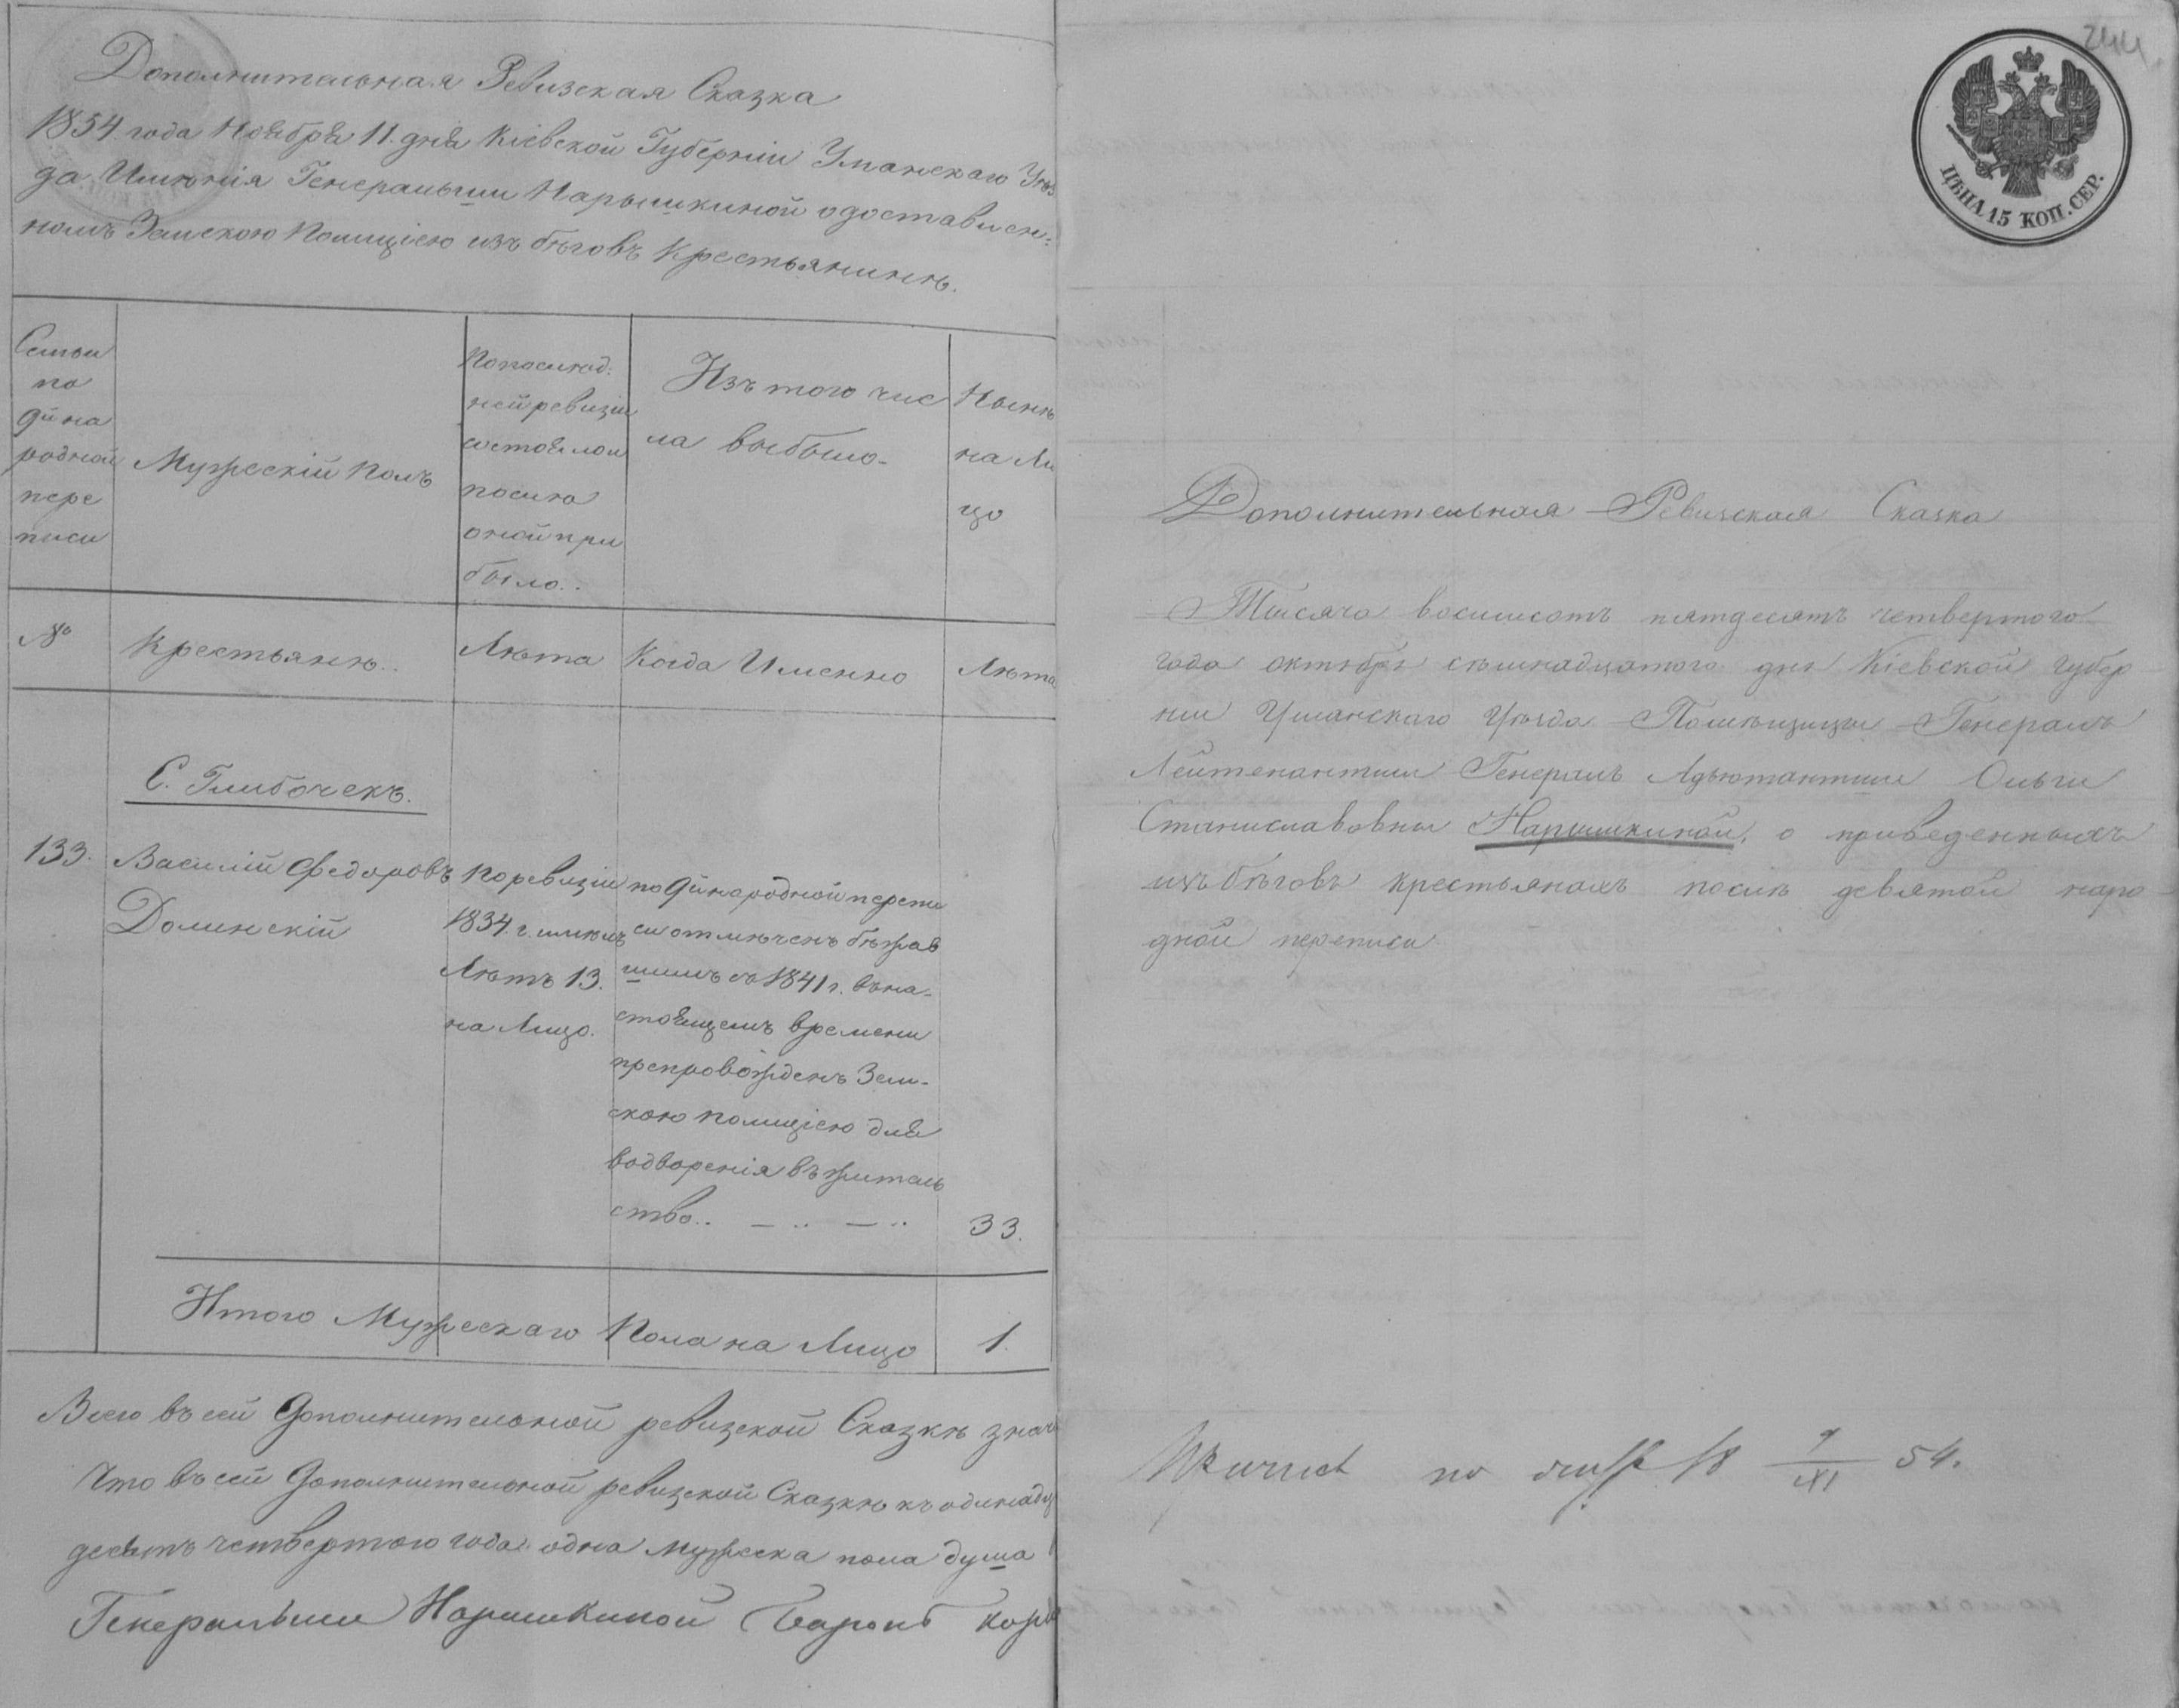 Дополнительная Ревизская Сказка
1854 года Ноября 11. дня Кіевской Губерніи Уманскаго Уѣз
да Имѣнія Генеральши Нарышкиной о доставлен-
номъ Земскою Полиціею изъ бѣговъ Крестьянинѣ.
Семьи
по
9й на
родной
пере
писи
Мужескій Полъ
По послѣд:
ней ревизіи
состояло и
послѣ
оной при
было..
Изъ того чис
ла выбыло-
Нынѣ
на Ли
цо
№
Крестьянѣ..
Лѣта
Когда Именно
Лѣта
С. Глибочекъ.
133.
Василій Федоровъ
Долинскій
По ревизіи
1834. г. имѣлъ
Лѣтъ 13.
на Лицо.
по 9й народной перепи
си отмѣченъ бѣжав
шимъ съ 1841 г. въ на-
стоящемъ времени
препровожденъ Зем-
скою Полиціею для
водворенія въ житель
ство..
33.
Итого Мужескаго Пола на Лицо
1.
Всего въ сей Дополнительной ревизской Сказкѣ знач
Что въ сей Дополнительной ревизской Сказкѣ къ одинадц
десятъ четвертого года одна мужеска пола душа
Генеральши Нарышкиной Баронъ Кор
244
ЦѢНА 15 КОП. СЕР.
Дополнительная Ревизская Сказка
Тысяча восимсотъ пятдесятъ четвертого
года октября сѣмнадцатого дня Кіевской губер
ніи Уманскаго Уѣзда Помѣщицы Генералъ
Лейтенантши Генералъ Адьютантши Ольги
Станиславовны Нарышкиной, о приведенныхъ
изъ бѣговъ крестьянахъ послѣ девятой наро
дной переписи
18 9/XI 54.